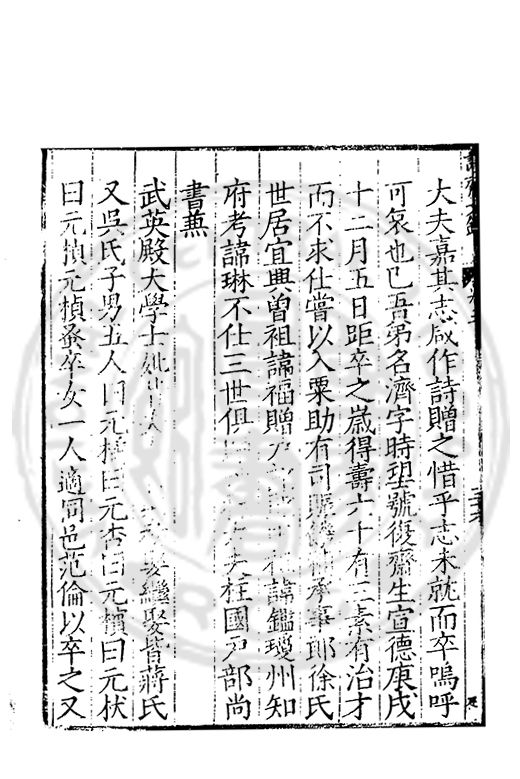 大夫嘉其志咸作詩贈之惜乎志未就而卒嗚呼
可哀也已吾弟名濟字時望號復齋生宣德庚戌
十二月五日距卒之歲得壽六十有三素有治才
而不求仕嘗以入粟助有司賑饑補承事郎徐氏
世居宜興曾祖諱福贈諱鑑瓊州知
府考諱琳不仕三世俱夫柱國戶部尚
書兼
武英殿大學士妣娶繼娶皆蔣氏
又吳氏子男五人曰元楷曰元杏曰元
曰元楨蚤卒女一人適同邑范倫以卒之又